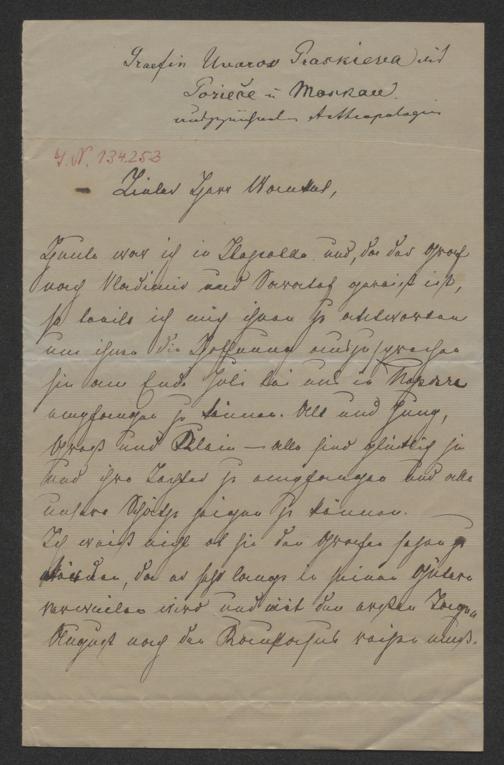 Graefin Uvarov Praskieva
Porieče u Moskau.
ausgezeichnete Anthropologin
J. N. 134.253
Lieber Herr Wankel,
Heute war ich in und, da der Graf
nach Vladimir und Saratof gereist ist,
so beeile ich mich ihnen zu antworten
um ihnen die Hoffnung auszusprechen
sie am Ende Juli bei uns in
empfangen zu können. Alt und Jung,
Groß und Klein – alle sind glücklich sie
und ihre Tochter zu empfangen und alle
unsere Schätze zeigen zu können.
Ich weiß nicht ob sie den Grafen sehen
da er sehr lange in seinen Gütern
verweilen wird und mit den ersten Tagen
August nach den Kaukasus reisen muß.